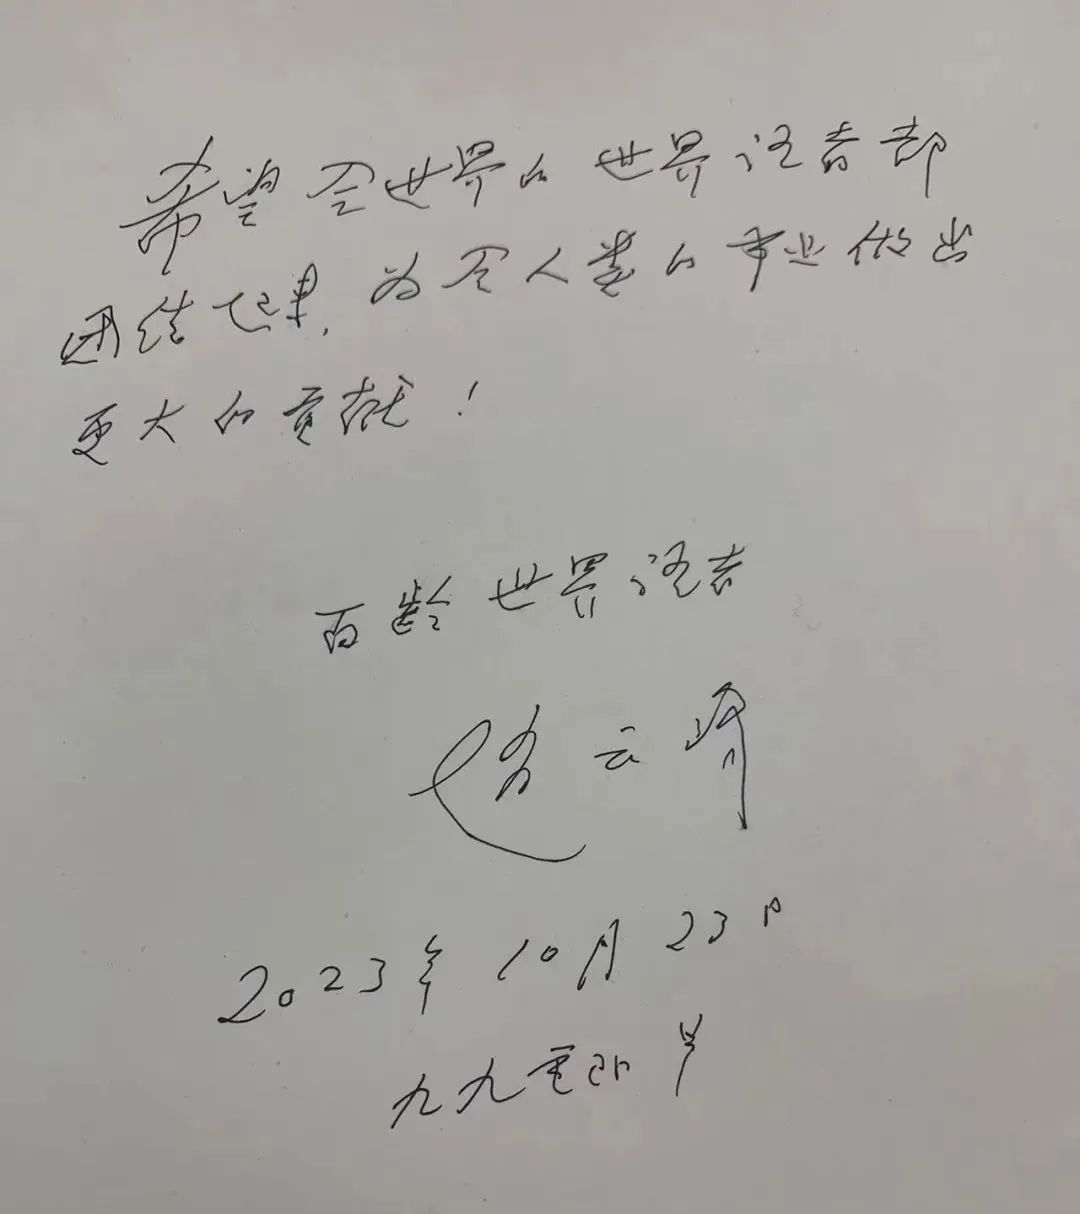 希望全世界的世界语者都
团结起来,为全人类的事业做出
更大的贡献!
百龄世界语者
云
2023年10月23日
九九重阳节